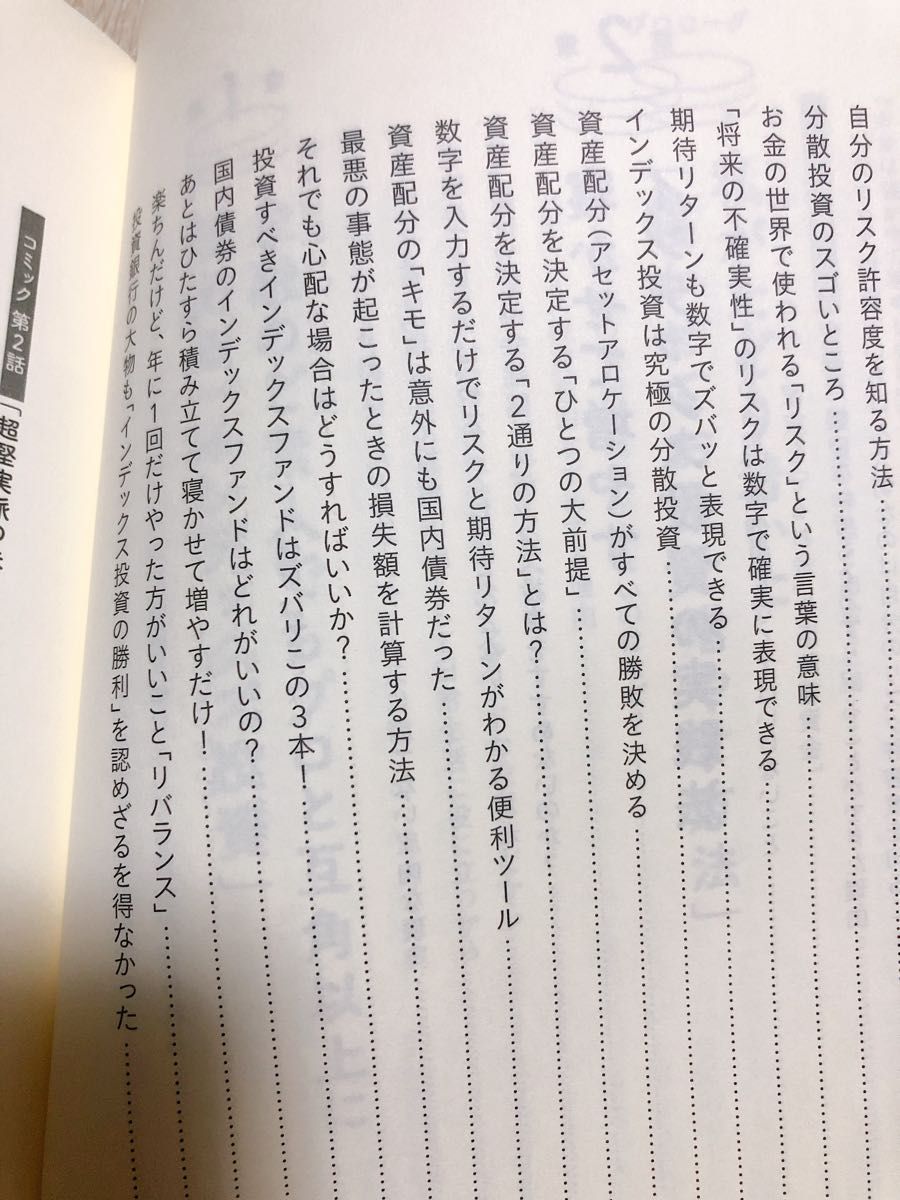 自分のリスク許容度を知る方法
分散投資のスゴいところ
お金の世界で使われる「リスク」という言葉の意味
「将来の不確実性」のリスクは数字で確実に表現できる
期待リターンも数字でズバッと表現できる
インデックス投資は究極の分散投資
資産配分(アセットアロケーション)がすべての勝敗を決める
資産配分を決定する「ひとつの大前提」
資産配分を決定する「2通りの方法」とは?
数字を入力するだけでリスクと期待リターンがわかる便利ツール
資産配分の「キモ」は意外にも国内債券だった
最悪の事態が起こったときの損失額を計算する方法
それでも心配な場合はどうすればいいか?
投資すべきインデックスファンドはズバリこの3本!
国内債券のインデックスファンドはどれがいいの?
あとはひたすら積み立てて寝かせて増やすだけ!
楽ちんだけど、年に1回だけやった方がいいこと「リバランス」
投資銀行の大物も「インデックス投資の勝利」を認めざるを得なかった
コミック 第2話
「超堅実派の